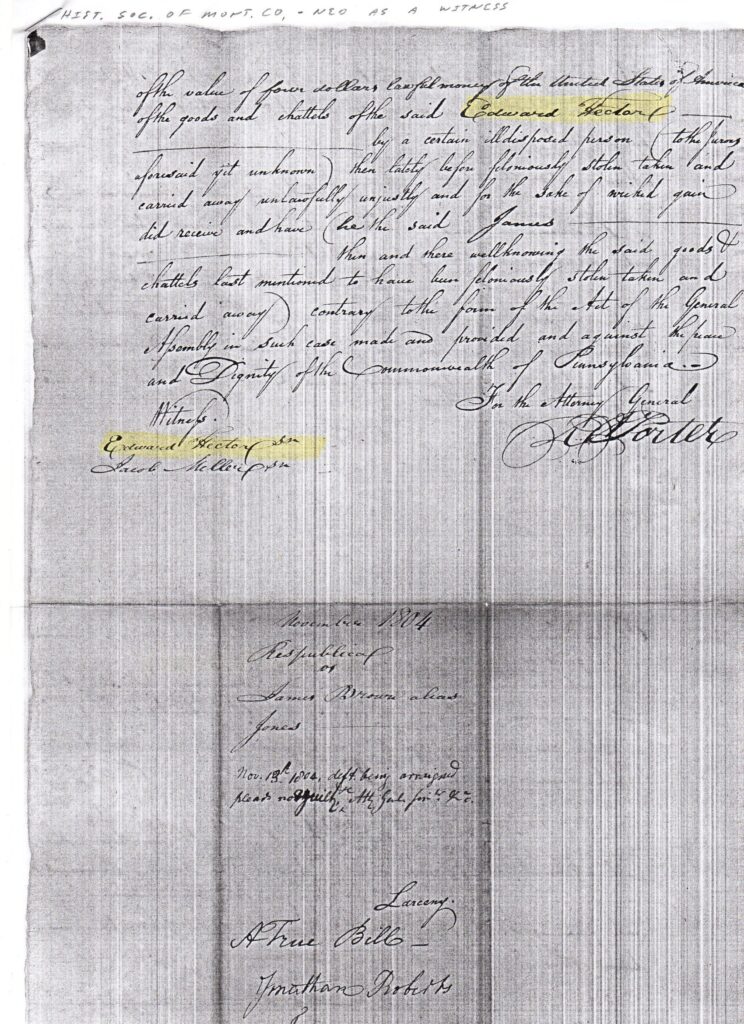 HIST. SOC. OF MONT. CO, - NED AS A WITNESS
of the value of four dollars lawful money of the United States of America
of the goods and chattels of the said Edward Hector
by a certain illdisposed person (to the jurors
aforesaid yet unknown) then lately before feloniously stolen taken and
carried away unlawfully unjustly and for the sake of wicked gain
did receive and have (he the said James
then and there well knowing the said goods &
chattels last mentioned to have been feloniously stolen taken and
carried away) contrary to the form of the Act of the General
Assembly in such case made and provided and against the peace
and Dignity of the Commonwealth of Pennsylvania.
For the Attorney General
Witness.
Porter
Edward Hector sn
Jacob Miller sn
November 1804
Respublica
vs
James Brown alias
Jones
Nov. 13th 1804, deft. being arraigned
pleads not guilty Atty Genl. &c.
Larceny.
A True Bill
Jonathan Roberts